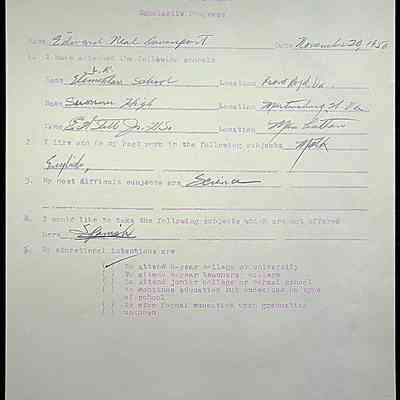 Scholastic Progress
Name Edward Neal Davenport Date November 20, 1950
1. I have attended the following schools
Name Elementary School Location
Name High Location Martinsburg, W. Va.
Name Location
2. I like and do my best work in the following subjects Math
English,
3. My most difficult subjects are Science
4. I would like to take the following subjects which are not offered
here Spanish
5. My educational intentions are
To attend 4-year college or university
To attend 4-year teachers' college
To attend junior college or normal school
To continue education but undecided on type
of school
No more formal education upon graduation
Unknown